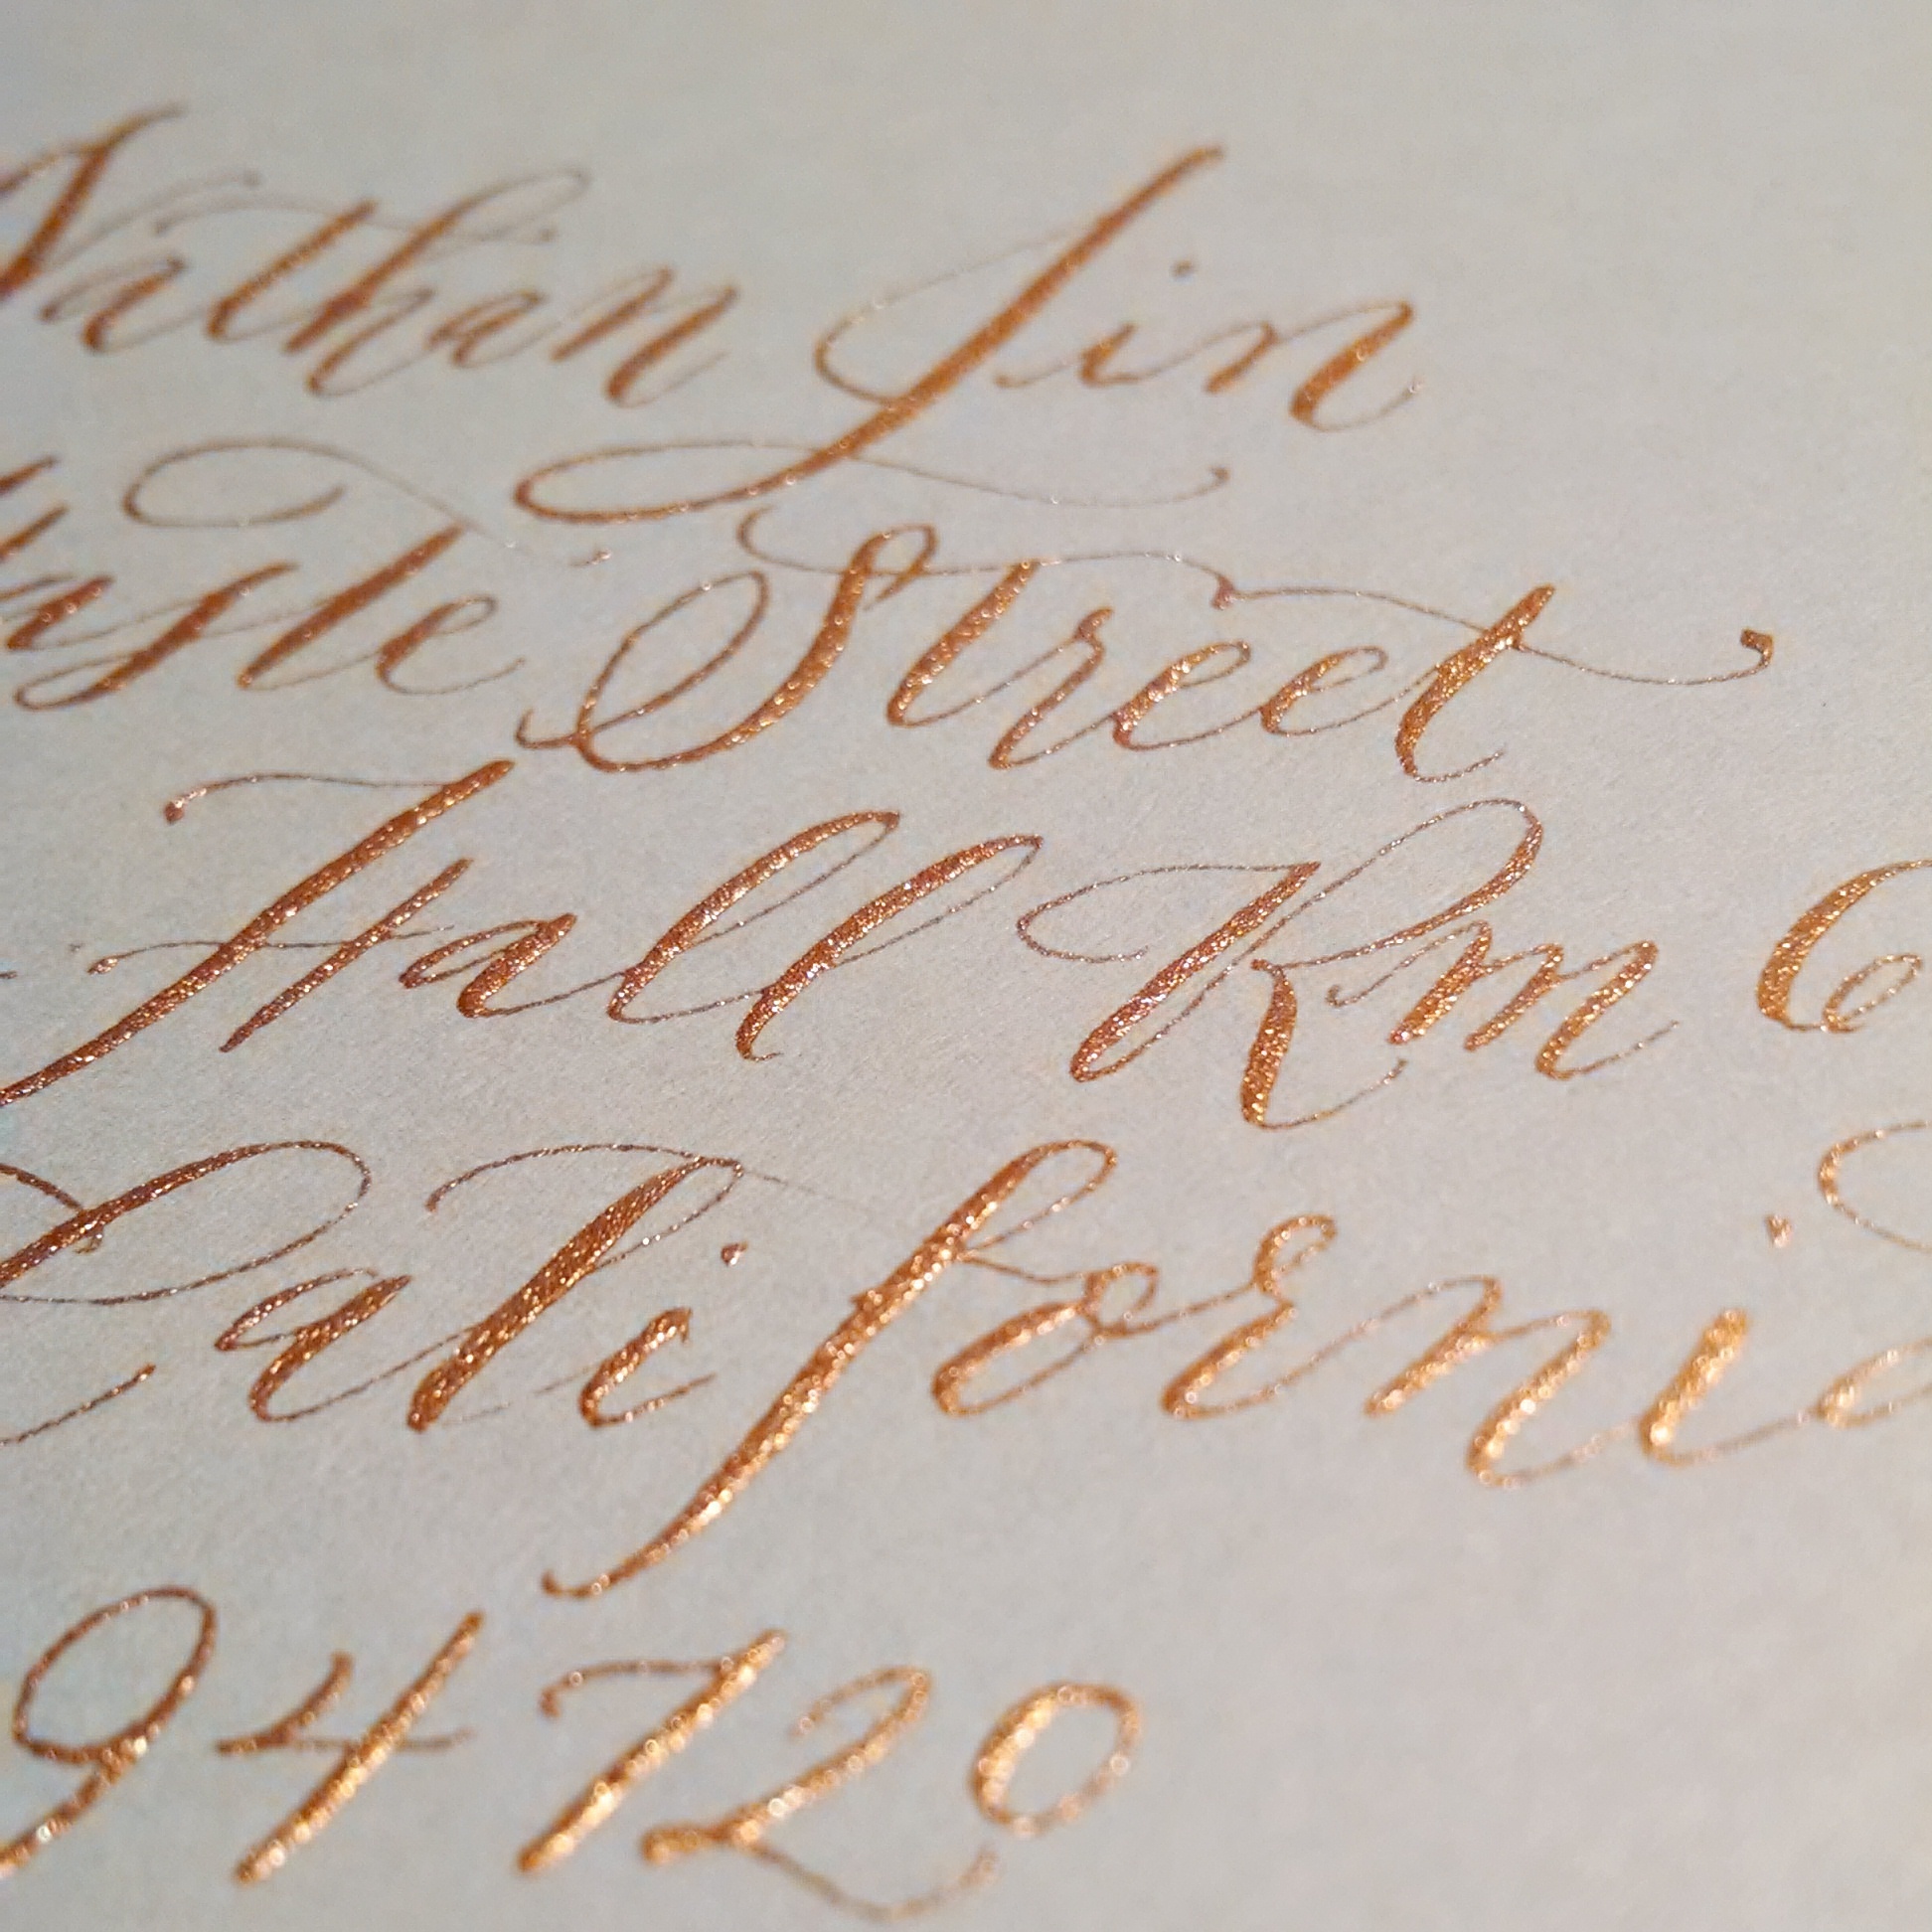 Nathan Jin
Street
Hall Rm 6
California
94720